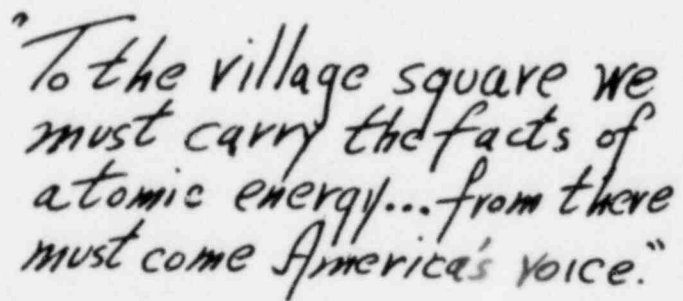 "To the village square we
must carry the facts of
atomic energy...from there
must come America's voice."